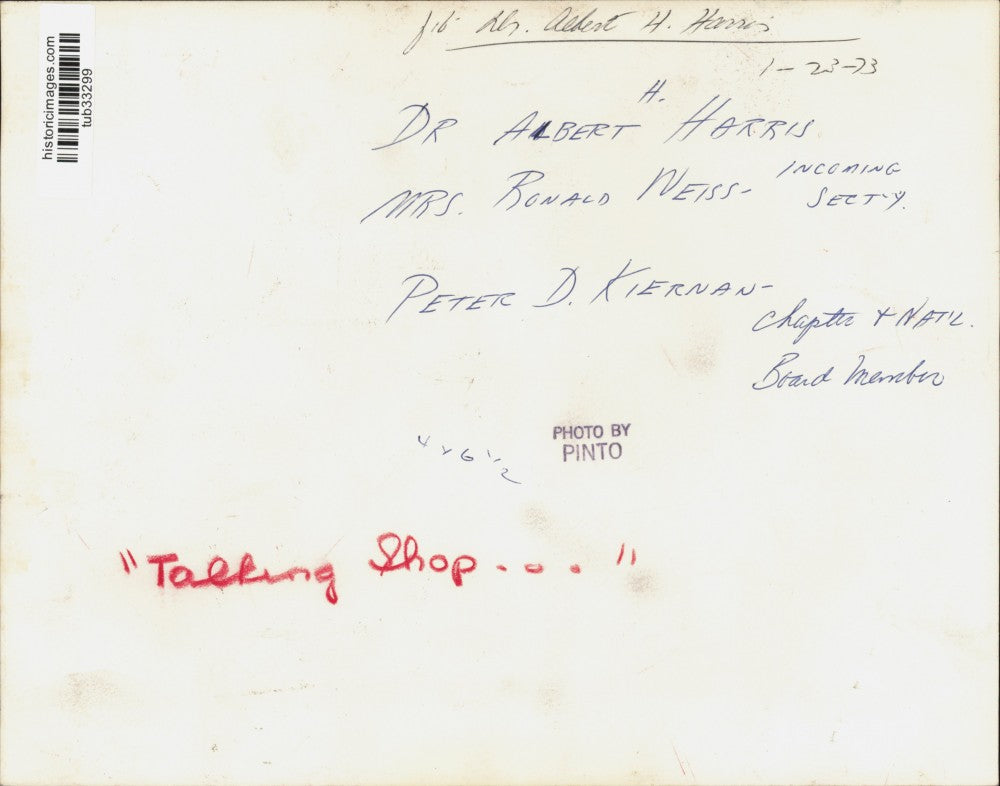 historicimages.com
tub33299
Dr. Albert H. Harris
1-23-73
H.
DR ALBERT HARRIS
MRS. RONALD WEISS- INCOMING
SECT-Y.
PETER D. KIERNAN-
Chapter + NAT'L.
Board Member
4 x 6 1/2
PHOTO BY
PINTO
"Talking Shop... "